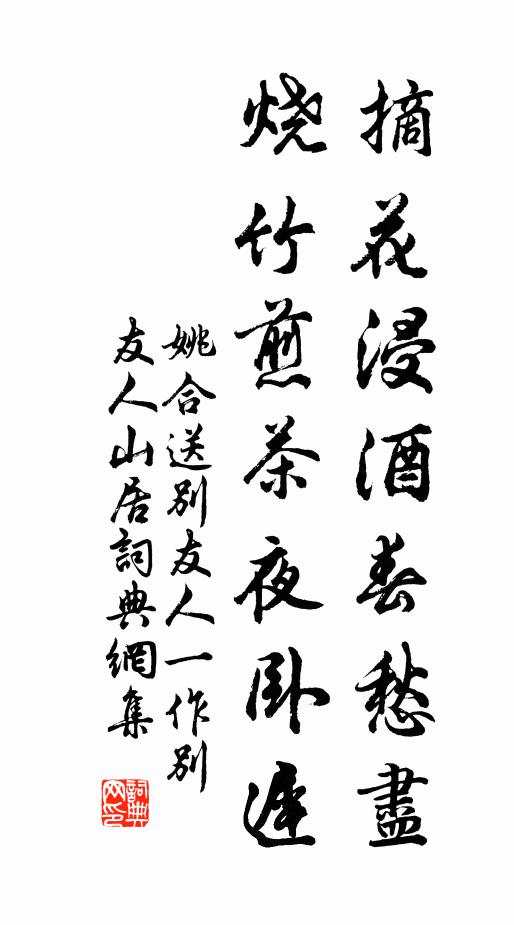 摘花浸酒春愁盡
烧竹煎茶夜卧遲
姚合送别友人一作别
友人山居詞典網集
詞典
网印